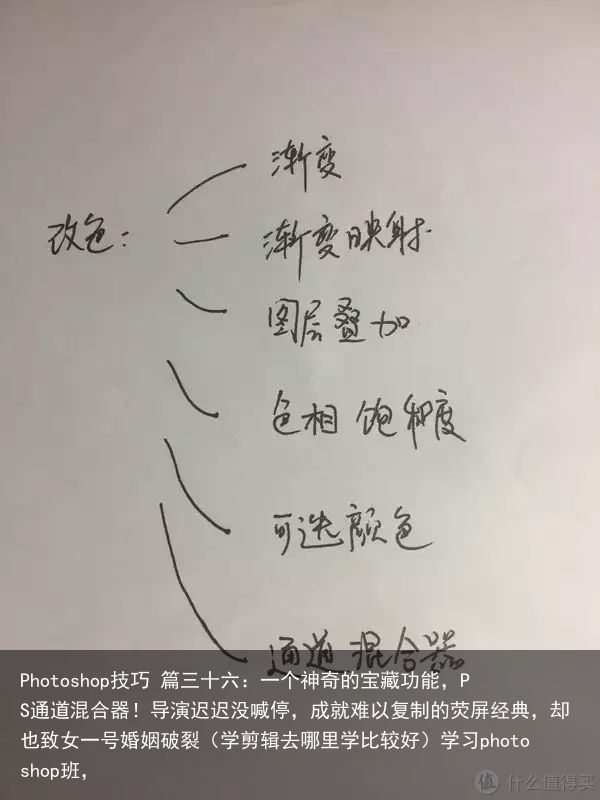 渐变
改色：
渐变映射
图层叠加
色相 饱和度
可选颜色
通道混合器
Photoshop技巧 篇三十六：一个神奇的宝藏功能，P
S通道混合器！导演迟迟没喊停，成就难以复制的荧屏经典，却
也致女一号婚姻破裂（学剪辑去哪里学比较好）学习photo
shop班，
值 什么值得买